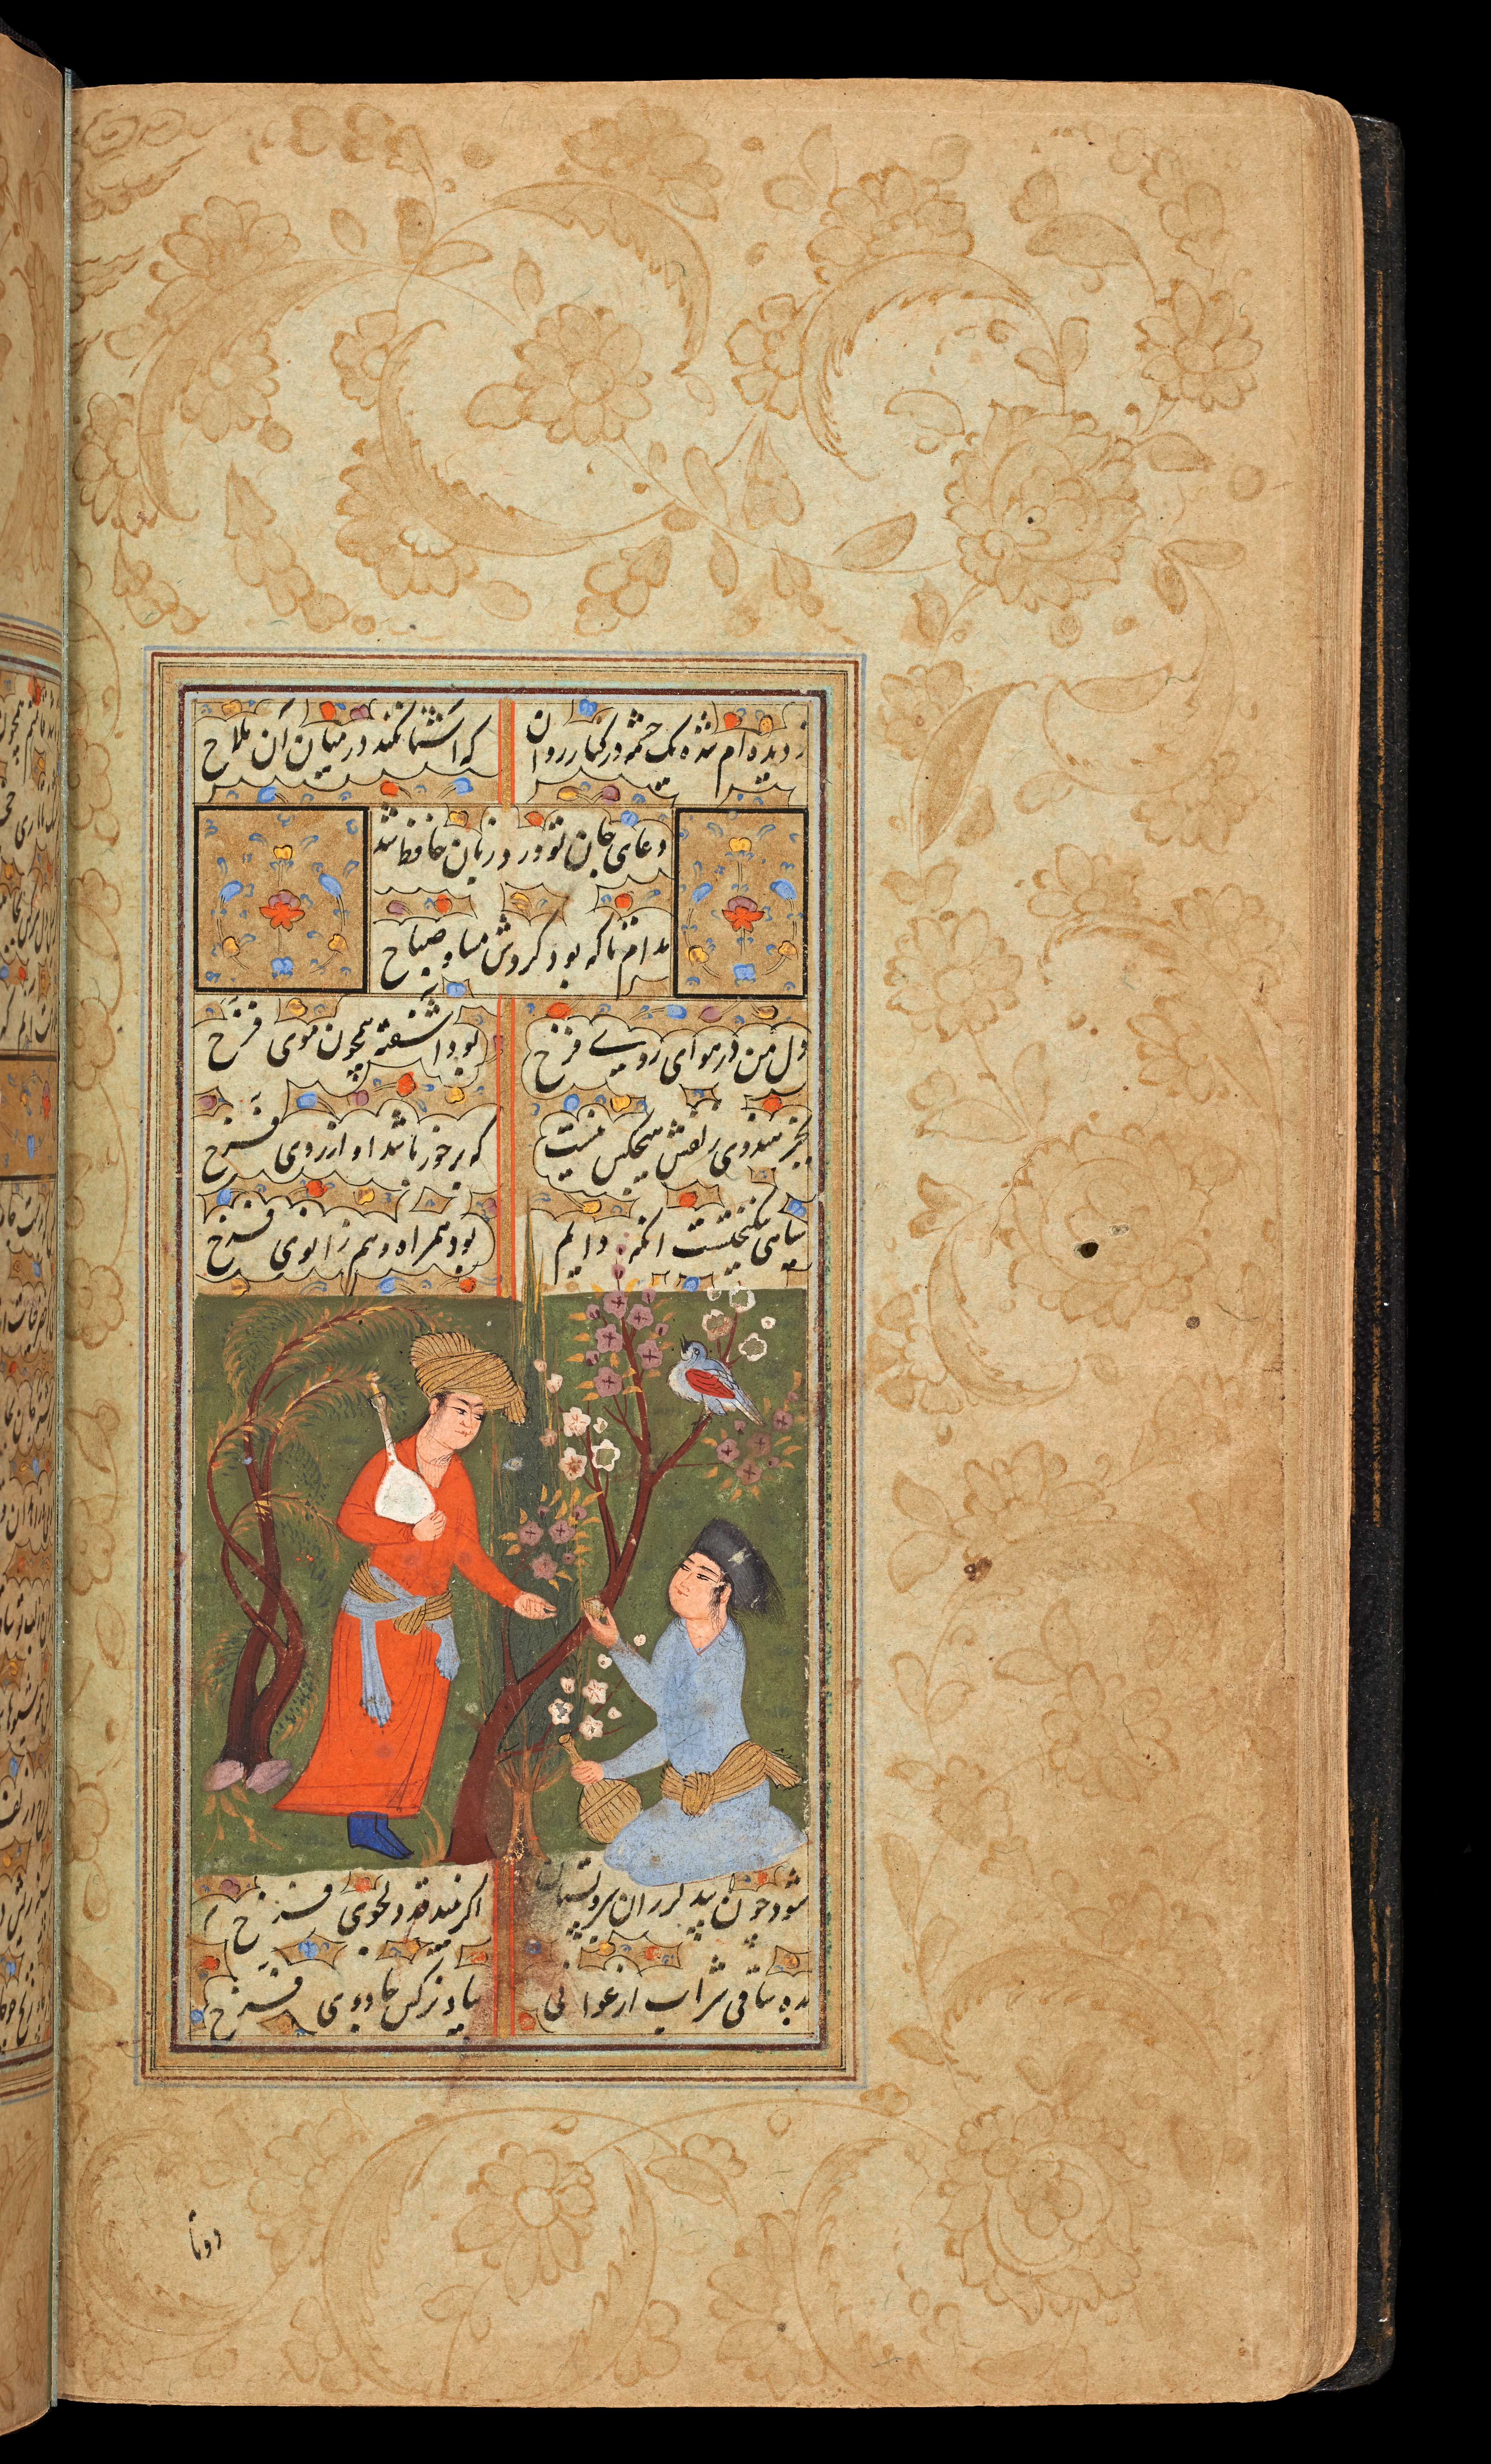 ز دیده ام شده یک چشمه در کنار روان
که آشنا نکند در میان آن ملاح
دعای جان تو ورد زبان حافظ شد
مدام تا که بود گردش مسا و صباح
دل من در هوای رویے فرخ
بود آشفته همچون موی فرخ
بجز هندوی زلفش هیچکس نیست
که برخور باشد او از روی فرخ
سیاهی نیکبختست آنکه دایم
بود همراه و هم زانوی فرخ
شود چون بید لرزان سرو بستان
اگر بیند قد دلجوی فرخ
بده ساقی شراب ارغوانی
بیاد نرگس جادوی فرخ
دوتا